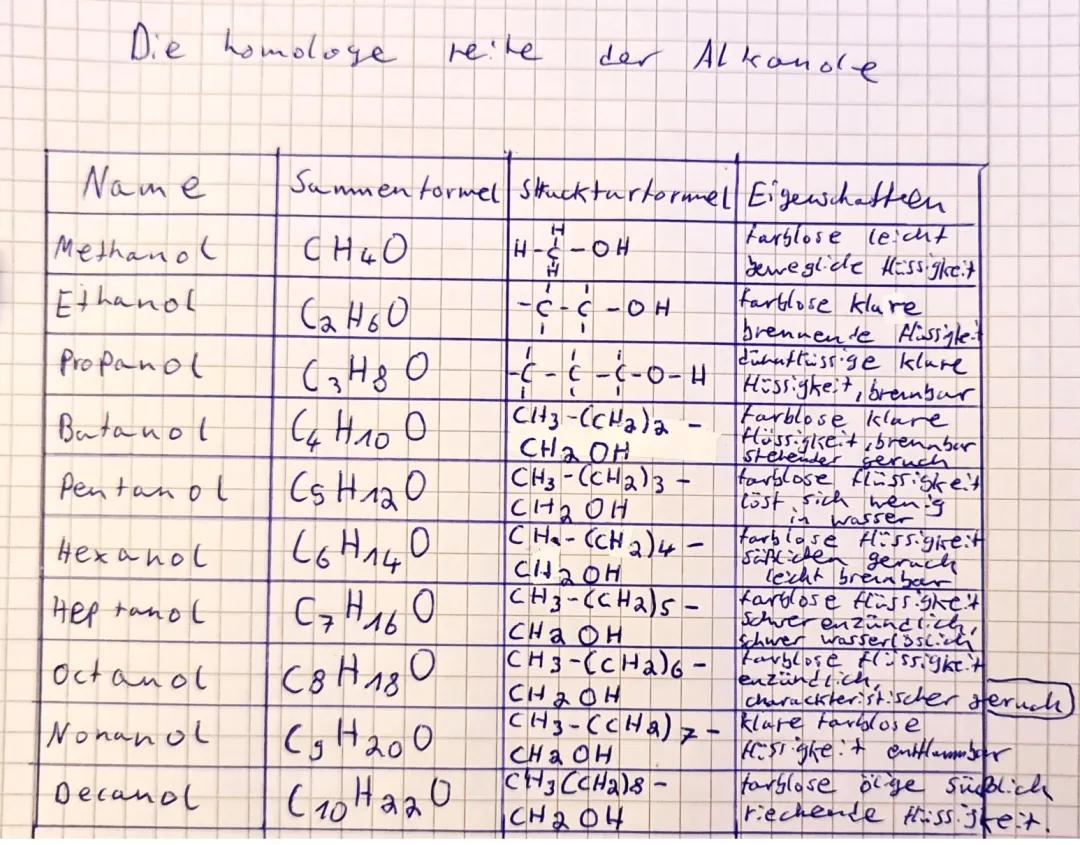 Die homologe reihe der Alkanole
Name Summenformel Struckturformel Eigenschaften
Methanol CH4O H-C-OH farblose leicht
H
H
bewegliche flüssigkeit
Ethanol C2H6O -C-C-OH farblose klare
brennende flüssigkeit
Propanol C3H8O -C-C-C-O-H dünnflüssige klare
flüssigkeit, brennbar
Butanol C4H10O CH3-(CH2)2- farblose klare
CH2OH flüssigkeit, brennbar
stechender geruch
Pentanol C5H12O CH3-(CH2)3- farblose flüssigkeit
CH2OH löst sich wenig
in wasser
Hexanol C6H14O CH3-(CH2)4- farblose flüssigkeit
süßlichen geruch
CH2OH leicht brennbar
Heptanol C7H16O CH3-(CH2)5- farblose flüssigkeit
schwer enzündlich,
CH2OH schwer wasserlöslich
Octanol C8H18O CH3-(CH2)6- farblose flüssigkeit
enzündlich,
CH2OH charackteristischer geruch
Nonanol C9H20O CH3-(CH2)7- klare farblose
CH2OH flüssigkeit entflammbar
Decanol C10H22O CH3(CH2)8- farblose ölige süßlich
CH2OH riechende flüssigkeit.